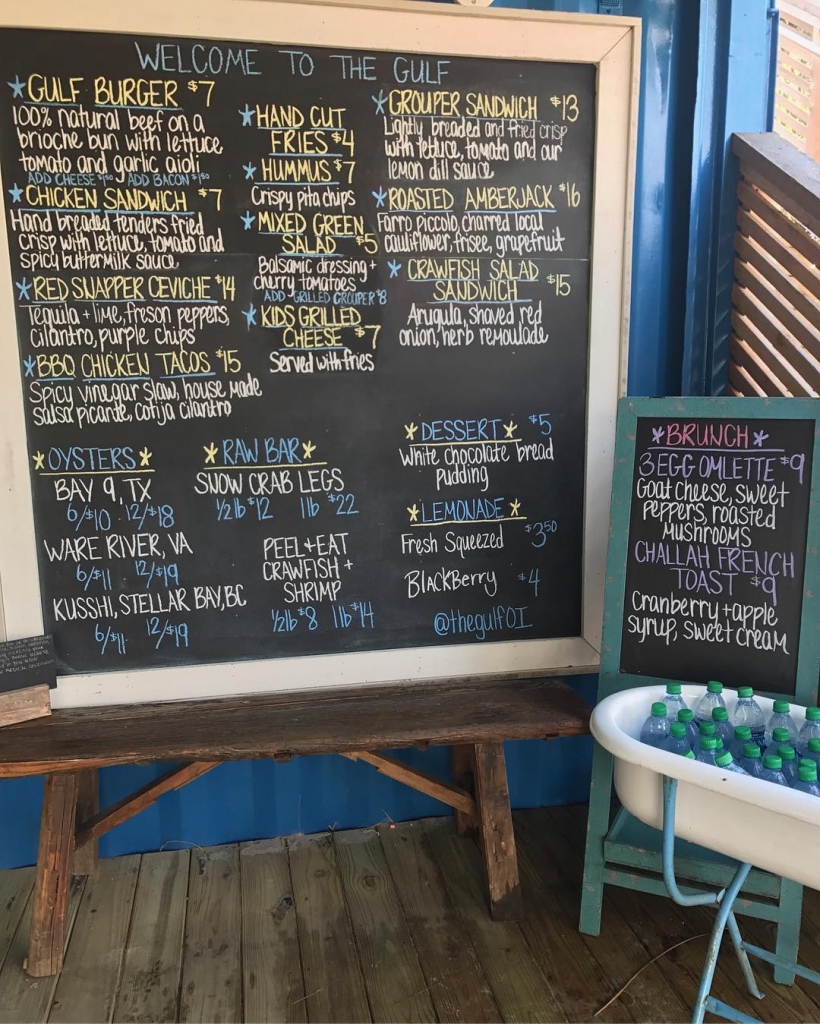 WELCOME TO THE GULF
GULF BURGER $7
100% natural beef on a
brioche bun with lettuce
tomato and garlic aioli
ADD CHEESE $1.50 ADD BACON $1.50
CHICKEN SANDWICH $7
Hand breaded tenders fried
crisp with lettuce, tomato and
spicy buttermilk sauce
RED SNAPPER CEVICHE $14
Tequila + lime, freson peppers,
cilantro, purple chips
BBQ CHICKEN TACOS $15
Spicy vinegar slaw, house made
salsa picante, cotija cilantro
HAND CUT
FRIES $4
HUMMUS $7
Crispy pita chips
MIXED GREEN
SALAD $5
Balsamic dressing +
cherry tomatoes
ADD GRILLED GROUPER $8
KIDS GRILLED
CHEESE $7
Served with fries
GROUPER SANDWICH $13
Lightly breaded and fried crisp
with lettuce, tomato and our
lemon dill sauce
ROASTED AMBERJACK $16
Farro piccolo, charred local
cauliflower, frisee, grapefruit
CRAWFISH SALAD
SANDWICH $15
Arugula, shaved red
onion, herb remoulade
OYSTERS
BAY 9, TX
6/$10 12/$18
WARE RIVER, VA
6/$11 12/$19
KUSSHI, STELLAR BAY, BC
6/$11 12/$19
RAW BAR
SNOW CRAB LEGS
1/2lb $12 1lb $22
PEEL + EAT
CRAWFISH +
SHRIMP
1/2lb $8 1lb $14
DESSERT $5
White chocolate bread
pudding
LEMONADE
Fresh Squeezed $3.50
BLACKBERRY $4
@thegulfOI
BRUNCH
3 EGG OMLETTE $9
Goat cheese, sweet
peppers, roasted
mushrooms
CHALLAH FRENCH
TOAST $9
Cranberry + apple
syrup, sweet cream